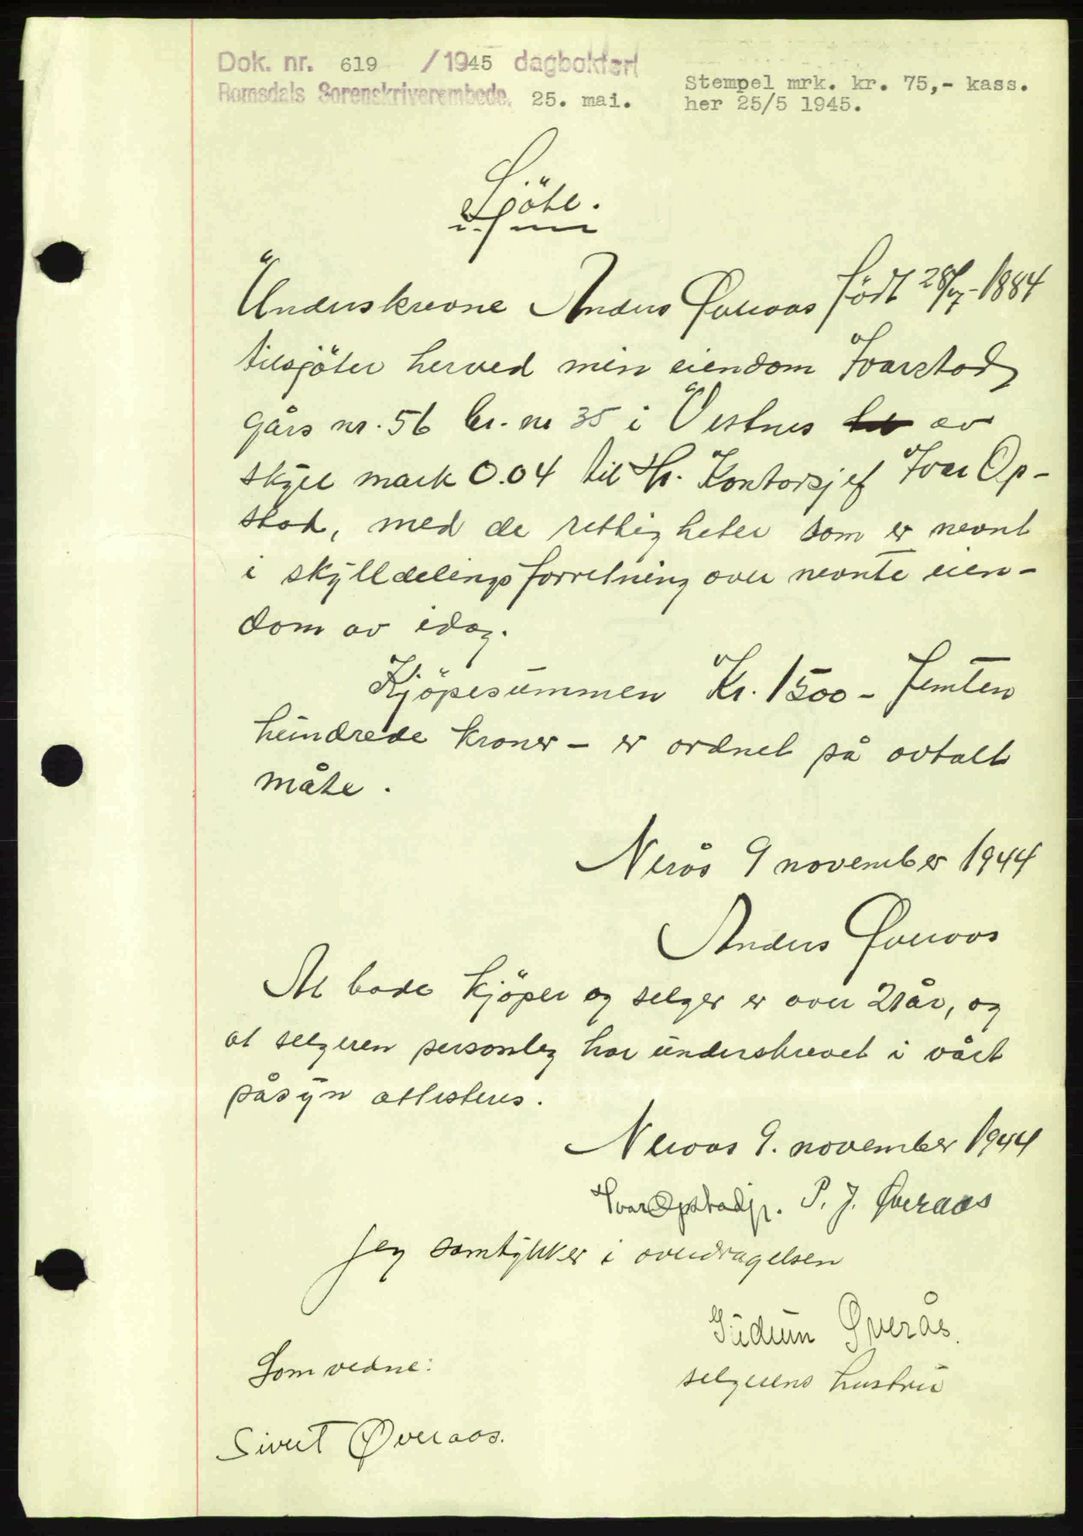 Dok. nr. 619 /1945 dagbokført
Romsdals Sorenskriverembede, 25. mai.
Stempel mrk. kr. 75,- kass.
her 25/5 1945.
Sjöte.
Underskrevne Anders Øveraas födt 28/7-1884
tilsjöter herved min eiendom Ivarstad
gårs nr. 56 br. nr 35 i Vestnes av
skyll mark 0.04 til Hr. Kontorsjef Ivar Op-
stad, med de rettigheter som er nevnt
i skylldelingsforretning over nevnte eien-
dom av idag.
Kjöpesummen Kr. 1500 - Femten
hundrede kroner - er ordnet på avtalt
måte.
Nerås 9 november 1944
Anders Øveraas
At bade kjöper og selger er over 21 år, og
at selgeren personleg har underskrevet i vårt
påsyn attesteres.
Neraas 9. november 1944
Ivar Opstad jr. P. J. Øveraas
Jeg samtykker i overdragelsen
Gudrun Øverås.
selgerens hustru
Som vedne:
Sivert Øveraas.